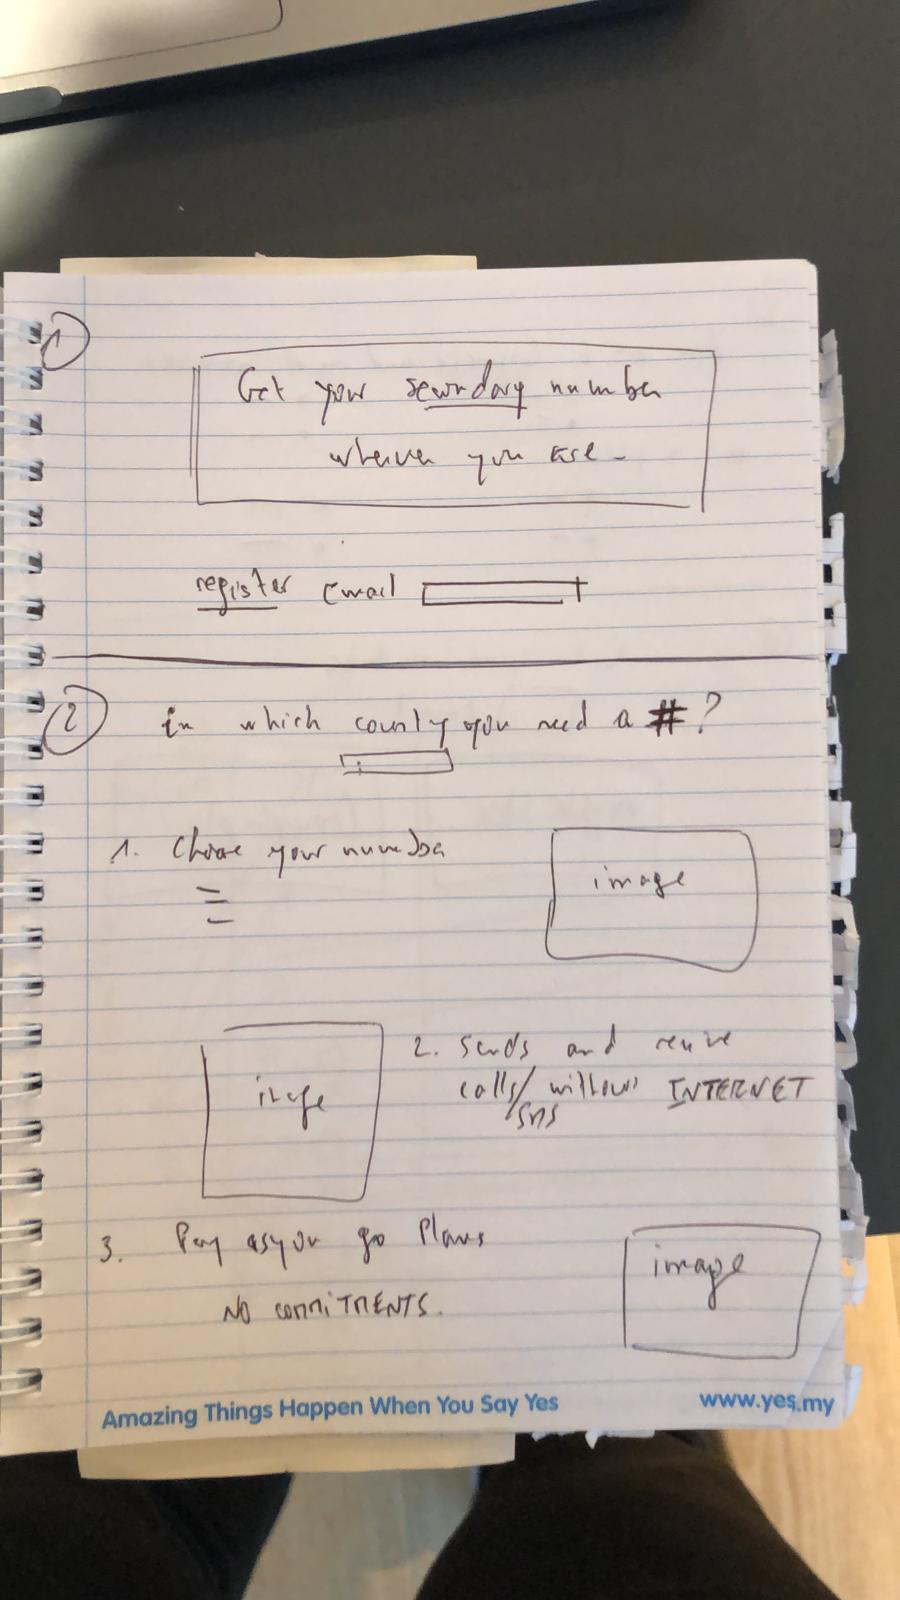 1
Get your secondary number
wherever you are.
register Email
2
in which country you need a #?
1. Choose your number
image
2. Sends and receive
image
calls/ without INTERNET
SMS
3. Pay as you go Plans
image
NO COMMITMENTS.
Amazing Things Happen When You Say Yes
www.yes.my